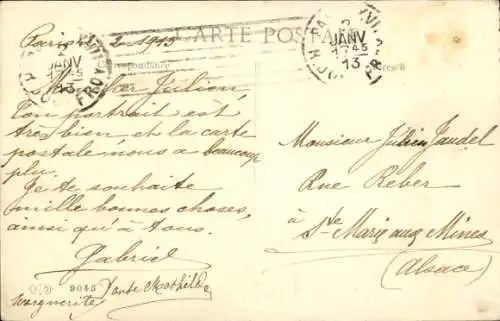 CARTE POSTALE
Paris 2-1-1913
Correspondance
Mon cher Julien,
Ton portrait est
très bien et la carte
postale nous a beaucoup
plu.
Je te souhaite
mille bonnes choses,
ainsi qu'à tous.
Gabriel
Marguerite Tante Mathilde
9045
JANV
17 45
13
JANV
17 45
13
Monsieur Julien Jaudel
Rue Reber
à Ste Marie aux Mines
(Alsace)